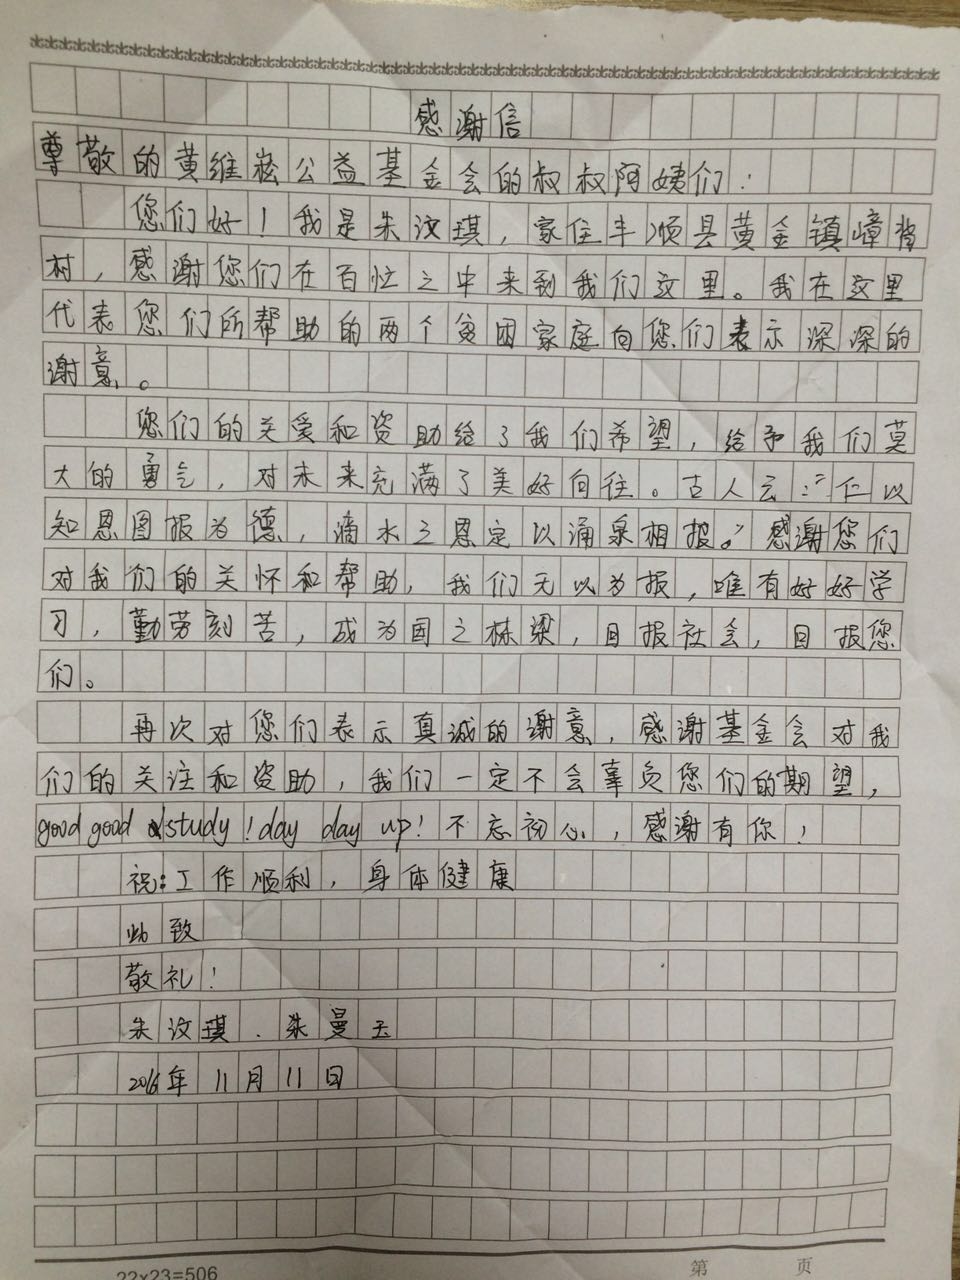 感谢信
尊敬的黄维崧公益基金会的叔叔阿姨们：
您们好！我是朱汶琪，家住丰顺县黄金镇嶂背
村，感谢您们在百忙之中来到我们这里。我在这里
代表您们所帮助的两个贫困家庭向您们表示深深的
谢意。
您们的关爱和资助给了我们希望，给予我们莫
大的勇气，对未来充满了美好向往。古人云："仁以
知恩图报为德，滴水之恩定以涌泉相报。"感谢您们
对我们的关怀和帮助，我们无以为报，唯有好好学
习，勤劳刻苦，成为国之栋梁，回报社会，回报您
们。
再次对您们表示真诚的谢意，感谢基金会对我
们的关注和资助，我们一定不会辜负您们的期望，
good good study！day day up！不忘初心，感谢有你！
祝：工作顺利，身体健康
此致
敬礼！
朱汶琪、朱曼玉
2016年11月11日
22×23=506 第 页